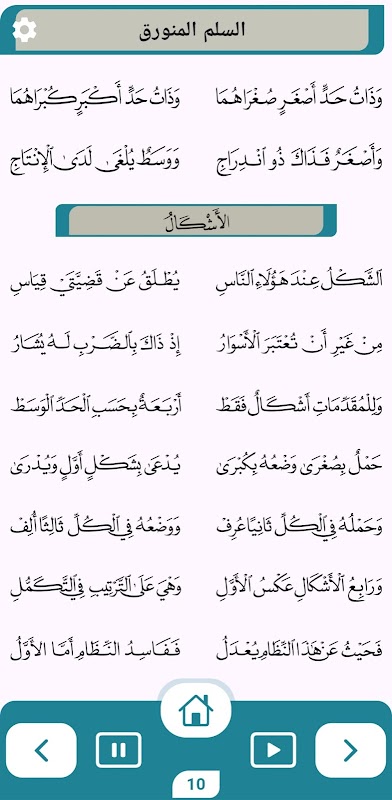 السلم المنورق
وَذَاتُ حَدٍّ أَصْغَرٍ صُغْرَاهُمَا وَذَاتُ حَدٍّ أَكْبَرٍ كُبْرَاهُمَا
وَأَصْغَرٌ فَذَاكَ ذُو انْدِرَاجِ وَوَسَطٌ يُلْغَى لَدَى الْإِنْتَاجِ
الْأَشْكَالُ
الشَّكْلُ عِنْدَ هَؤُلَاءِ النَّاسِ يُطْلَقُ عَنْ قَضِيَّتَيْ قِيَاسِ
مِنْ غَيْرِ أَنْ تُعْتَبَرَ الْأَسْوَارُ إِذْ ذَاكَ بِالضَّرْبِ لَهُ يُشَارُ
وَلِلْمُقَدِّمَاتِ أَشْكَالٌ فَقَطْ أَرْبَعَةٌ بِحَسَبِ الْحَدِّ الْوَسَطْ
حَمْلٌ بِصُغْرَى وَضْعُهُ بِكُبْرَى يُدْعَى بِشَكْلٍ أَوَّلٍ وَيُدْرَى
وَحَمْلُهُ فِي الْكُلِّ ثَانِيًا عُرِفْ وَوَضْعُهُ فِي الْكُلِّ ثَالِثًا أُلِفْ
وَرَابِعُ الْأَشْكَالِ عَكْسُ الْأَوَّلِ وَهْيَ عَلَى التَّرْتِيبِ فِي التَّكَمُّلِ
فَحَيْثُ عَنْ هَذَا النِّظَامِ يُعْدَلُ فَفَاسِدُ النِّظَامِ أَمَّا الْأَوَّلُ
10